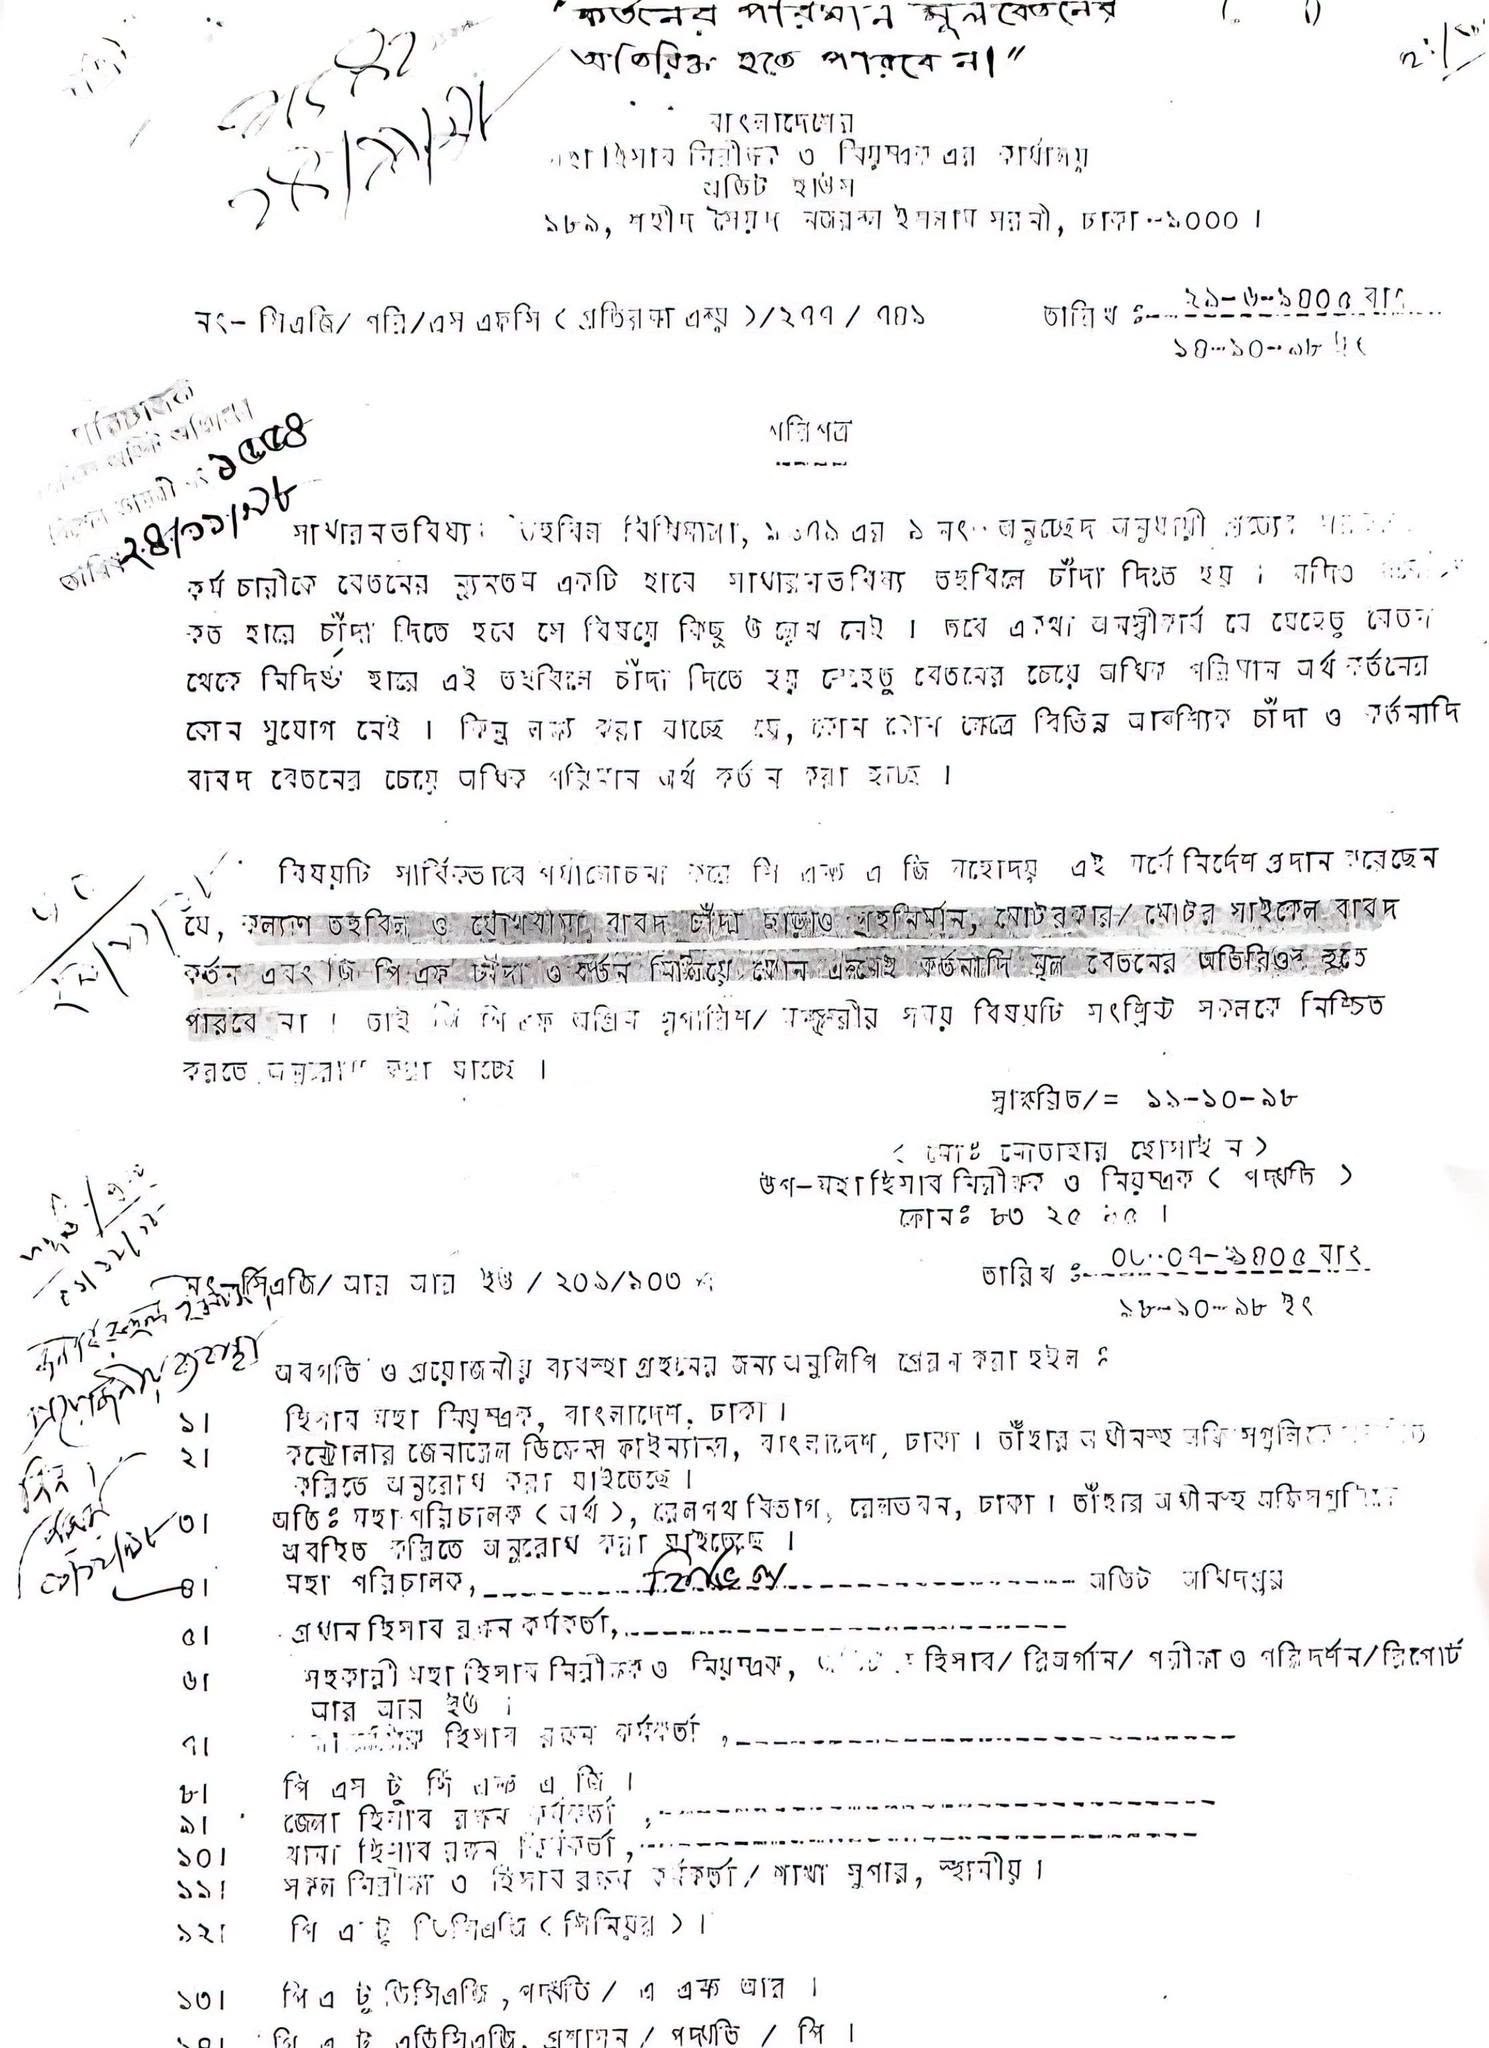 "কর্তনের পরিমান মূলবেতনের
অতিরিক্ত হতে পারবে না।"
বাংলাদেশের
মহা হিসাব নিরীক্ষক ও নিয়ন্ত্রক এর কার্যালয়
অডিট হাউস
১৮৯, শহীদ সৈয়দ নজরুল ইসলাম সরনী, ঢাকা--১০০০ ।
নং- সিএজি/ পরি/এস এফসি ( প্রতিরক্ষা এন্ড )/২৭৭ / ৭৪১
তারিখ ঃ-- ২৯-৬-১৪০৫ বাং
১৪--১০--৯৮ ইং
পরিপত্র
১৫৫৪
তারিখ ২৪/১১/৯৮
সাধারনভবিষ্য তহবিল বিধিমালা, ১৯৭৯ এর ৯ নং অনুচ্ছেদ অনুযায়ী প্রত্যেক
কর্মচারীকে বেতনের ন্যূনতম একটি হারে সাধারনভবিষ্য তহবিলে চাঁদা দিতে হয় । যদিও
কত হারে চাঁদা দিতে হবে সে বিষয়ে কিছু উল্লেখ নেই । তবে একথা অনস্বীকার্য যে যেহেতু বেতন
থেকে নির্দিষ্ট হারে এই তহবিলে চাঁদা দিতে হয় সেহেতু বেতনের চেয়ে অধিক পরিমান অর্থ কর্তনের
কোন সুযোগ নেই । কিন্তু লক্ষ্য করা যাচ্ছে যে, কোন কোন ক্ষেত্রে বিভিন্ন আবশ্যিক চাঁদা ও কর্তনাদি
বাবদ বেতনের চেয়ে অধিক পরিমান অর্থ কর্তন করা হচ্ছে ।
বিষয়টি সার্বিকভাবে পর্যালোচনা করে সি এন্ড এ জি মহোদয় এই মর্মে নির্দেশ প্রদান করেছেন
যে, কল্যাণ তহবিল ও যৌথবীমা বাবদ চাঁদা ছাড়াও গৃহনির্মান, মোটরকার/ মোটর সাইকেল বাবদ
কর্তন এবং জি পি এফ চাঁদা ও কর্তন মিলিয়ে কোন একমেই কর্তনাদি মূল বেতনের অতিরিক্ত হতে
পারবে না । তাই জি পি এফ অগ্রিম সুপারিশ/ মঞ্জুরীর সময় বিষয়টি সংশ্লিষ্ট সকলকে নিশ্চিত
করতে অনুরোধ করা যাচ্ছে ।
স্বাক্ষরিত/= ১১-১০-৯৮
( মোঃ মোতাহার হোসাইন )
উপ-মহা হিসাব নিরীক্ষক ও নিয়ন্ত্রক ( পদ্ধতি )
ফোনঃ ৮৩ ২৫
নং-সিএজি/ আর আর ইউ / ২০১/৯০৩
তারিখ ঃ-- ০৮--০৭-১৪০৫ বাং
১৮-১০-৯৮ ইং
প্রয়োজনীয় ব্যবস্থা
নিন।
অবগতি ও প্রয়োজনীয় ব্যবস্থা গ্রহনের জন্য অনুলিপি প্রেরন করা হইল ঃ
১। হিসাব মহা নিয়ন্ত্রক, বাংলাদেশ, ঢাকা ।
২। কন্ট্রোলার জেনারেল ডিফেন্স ফাইন্যান্স, বাংলাদেশ, ঢাকা । তাঁহার অধীনস্থ অফিসগুলিকে
করিতে অনুরোধ করা যাইতেছে ।
৩। অতিঃ মহা পরিচালক ( অর্থ ), রেলপথ বিভাগ, রেলভবন, ঢাকা । তাঁহার অধীনস্থ অফিসগুলিকে
অবহিত করিতে অনুরোধ করা যাইতেছে ।
৪। মহা পরিচালক, সিভিল অডিট অধিদপ্তর
৫। প্রধান হিসাব রক্ষন কর্মকর্তা,
৬। সহকারী মহা হিসাব নিরীক্ষক ও নিয়ন্ত্রক, হিসাব/ রিঅর্গান/ পরীক্ষা ও পরিদর্শন/রিপোর্ট
আর আর ইউ ।
৭। হিসাব রক্ষন কর্মকর্তা ,
৮। পি এস টু সি এন্ড এ জি ।
৯। জেলা হিসাব রক্ষন কর্মকর্তা ,
১০। থানা হিসাব রক্ষন কর্মকর্তা,
১১। সকল নিরীক্ষা ও হিসাব রক্ষন কর্মকর্তা/ শাখা সুপার, স্থানীয় ।
১২। পি এ টু ডিসিএজি ( সিনিয়র ) ।
১৩। পি এ টু ডিসিএজি, পদ্ধতি / এ এন্ড আর ।
১৪। পি এ টু এডিসিএজি, প্রশাসন / পদ্ধতি / পি ।